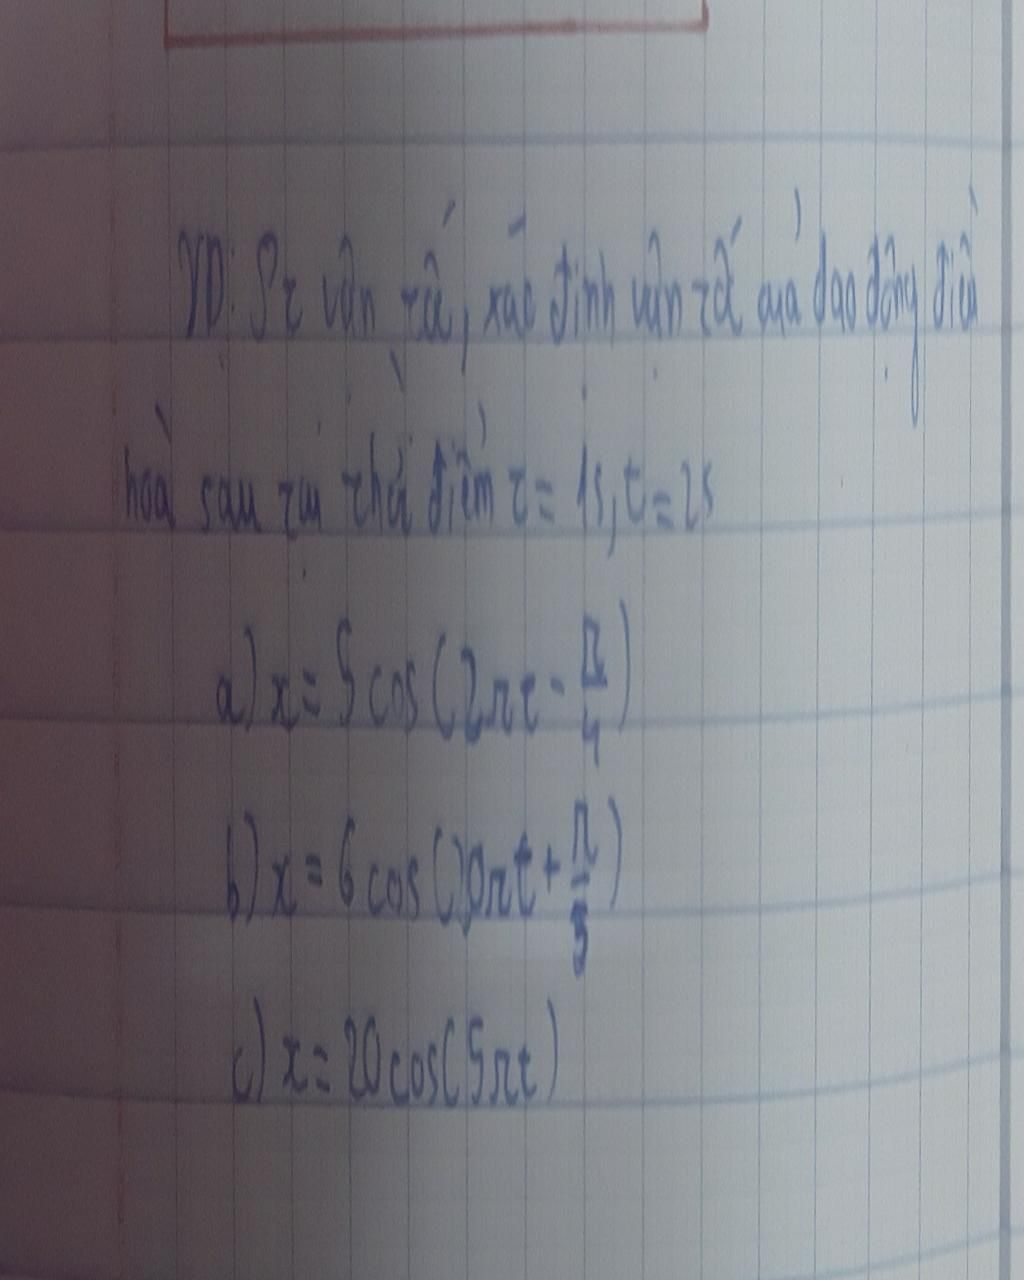 VD: Pt vận tố, xác định vận tố của dao động điều
hoà sau tại thời điểm t = 1s, t = 2s
a) x = 5 cos (2πt - π/4)
b) x = 6 cos (20πt + π/3)
c) x = 20 cos (5πt)